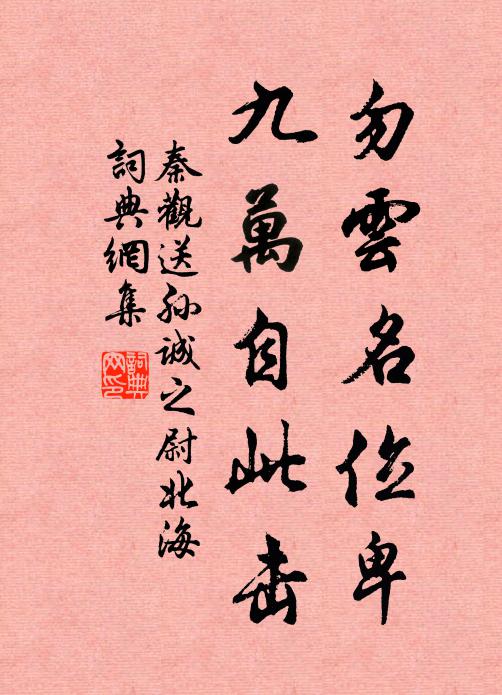 勿雲名位卑
九萬自此击
秦觀送孙誠之尉北海
詞典網集
詞典網印